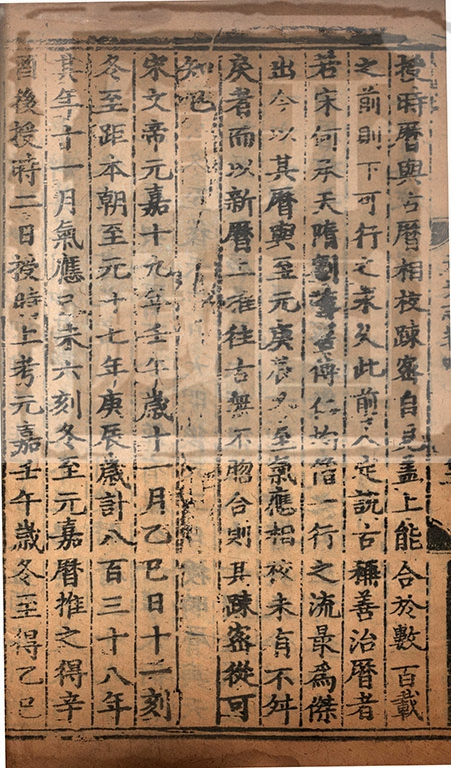 授時曆與古曆相校踈密自見盖上能合於數百載
之前則下可行之永久此前人定說古稱善治曆者
若宋何承天隋劉焯唐傅仁均僧一行之流最為傑
出今以其曆與至元庚辰冬至氣應相校未有不舛
戾者而以新曆上推往古無不脗合則其踈密從可
知已
宋文帝元嘉十九年壬午歲十一月乙巳日十二刻
冬至距本朝至元十七年庚辰歲計八百三十八年
其年十一月氣應己未六刻冬至元嘉曆推之得辛
酉後授時二日授時上考元嘉壬午歲冬至得乙巳